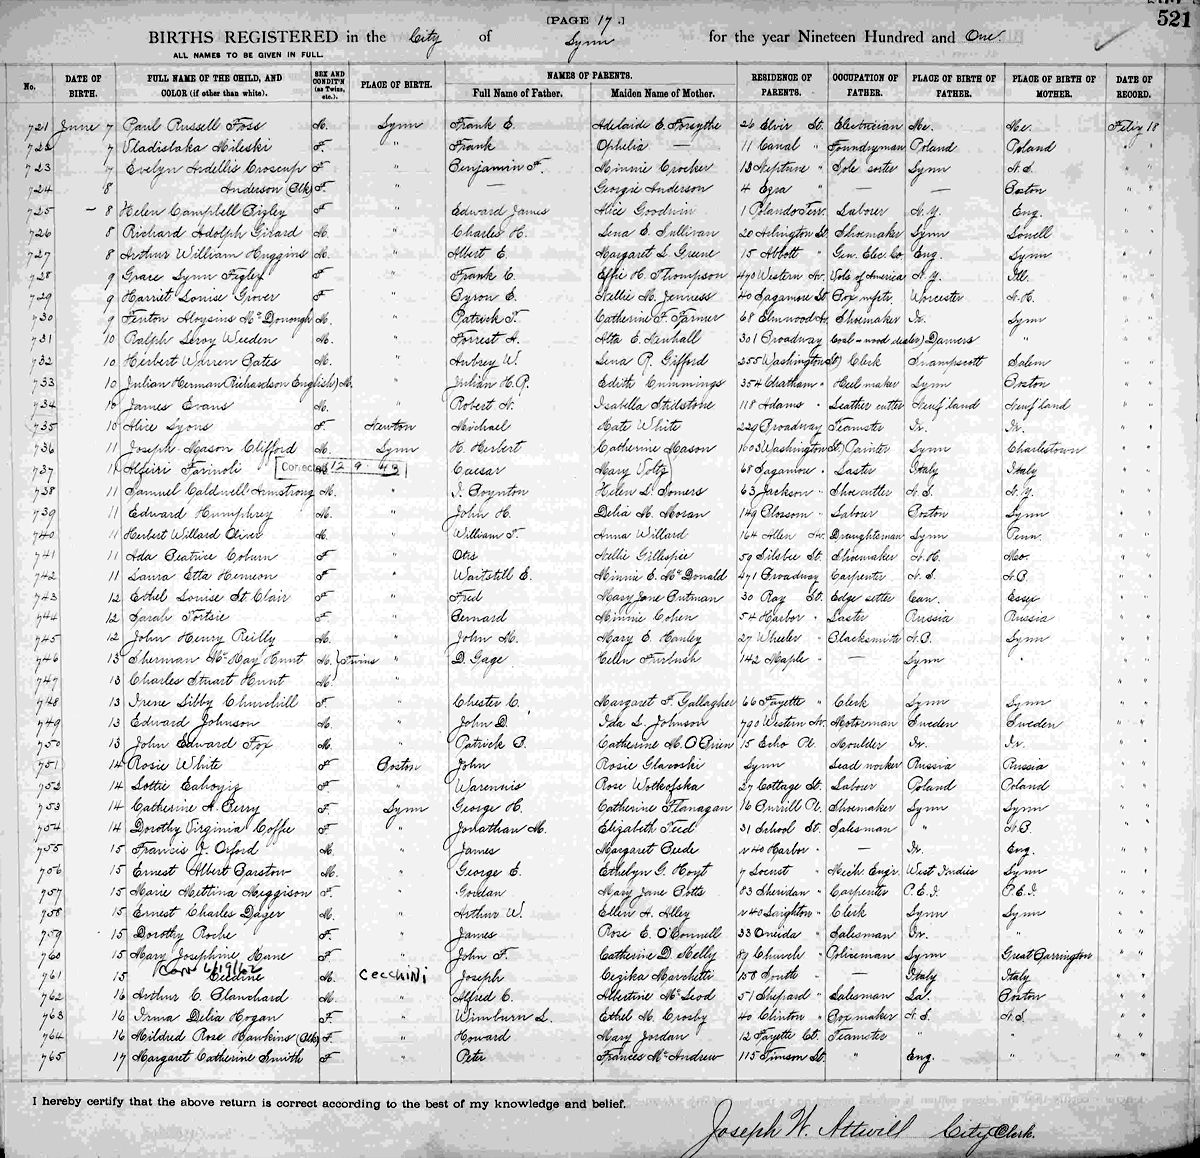 [PAGE 17.]
521
BIRTHS REGISTERED in the City of Lynn for the year Nineteen Hundred and One
ALL NAMES TO BE GIVEN IN FULL.
No. DATE OF BIRTH. FULL NAME OF THE CHILD, AND COLOR (if other than white). SEX AND CONDIT'N (as Twins, etc.). PLACE OF BIRTH. NAMES OF PARENTS. Full Name of Father. Maiden Name of Mother. RESIDENCE OF PARENTS. OCCUPATION OF FATHER. PLACE OF BIRTH OF FATHER. PLACE OF BIRTH OF MOTHER. DATE OF RECORD.
721 June 7 Paul Russell Foss M. Lynn Frank E. Adelaide E. Forsythe 26 Elvir St. Electrician Me. Me. 18
722 7 Vladislaka Mileski F. " Frank Ophelia — 11 Canal " Foundryman Poland Poland " "
723 7 Evelyn Ardellis Croscup F. " Benjamin F. Minnie Crocker 13 Neptune " Sole sorter Lynn N.S. " "
724 8 Anderson (Blk) F. " — Georgie Anderson 4 Ezra " — — Boston " "
725 – 8 Helen Campbell Bigley F. " Edward James Alice Goodwin 1 Rolando Terr. Laborer N.Y. Eng. " "
726 8 Richard Adolph Girard M. " Charles H. Lena E. Sullivan 20 Arlington St Shoemaker Lynn Lowell " "
727 8 Arthur William Huggins M. " Albert E. Margaret L. Greene 15 Abbott " Gen. Elec. Co. Eng. Lynn " "
728 9 Grace Lynn Figley F. " Frank C. Effie H. Thompson 490 Western Av. Vols of America N.Y. Ill. " "
729 9 Harriet Louise Grover F. " Byron E. Nellie M. Jenness 40 Sagamore St Box mfr. Worcester N.H. " "
730 9 Fenton Aloysius McDonough M. " Patrick F. Catherine F. Farmer 68 Elmwood Av. Shoemaker Ir. Lynn " "
731 10 Ralph Leroy Weeden M. " Forrest A. Alta E. Newhall 301 Broadway Coal & wood dealer) Danvers " " "
732 10 Herbert Warren Bates M. " Aubrey W. Lena R. Gifford 255 Washington St) Clerk Swampscott Salem " "
733 10 Julian Herman Richardson English) M. " Julian H.R. Edith Cummings 354 Chatham " Heel maker Lynn Boston " "
734 10 James Evans M. " Robert N. Isabella Stidstone 118 Adams " Leather cutter Newf'land Newf'land " "
735 10 Alice Lyons F. Newton Michael Kate White 229 Broadway Teamster Ir. Ir. " "
736 11 Joseph Mason Clifford M. Lynn H. Herbert Catherine Mason 160 Washington St.) Painter Lynn Charlestown " "
737 11 Alfeiri Farinoli Corrected 12.9.43 Caesar Mary Voltz 68 Sagamore " Laster Italy Italy " "
738 11 Samuel Caldwell Armstrong M. " I. Boynton Helen L. Somers 63 Jackson " Shoe cutter N.S. N.Y. " "
739 11 Edward Humphrey M. " John H. Delia M. Moran 149 Blossom " Labour Boston Lynn " "
740 11 Herbert Willard Oliver M. " William F. Anna Willard 164 Allen Av. Draughtsman Lynn Penn. " "
741 11 Ada Beatrice Coburn F. " Otis Nellie Gillespie 50 Silsbee St. Shoemaker N.H. Mo. " "
742 11 Laura Etta Henson F. " Waitstill E. Minnie E. McDonald 471 Broadway Carpenter N.S. N.B. " "
743 12 Ethel Louise St. Clair F. " Fred Mary Jane Putman 30 Ray St. Edge setter Can. Essex " "
744 12 Sarah Tortsie F. " Bernard Minnie Cohen 54 Harbor " Laster Russia Russia " "
745 12 John Henry Reilly M. " John M. Mary E. Hanley 27 Wheeler " Blacksmith N.B. Lynn " "
746 13 Sherman McKay Hunt M. } twins " D. Gage Helen Furbush 142 Maple " — Lynn " " "
747 13 Charles Stuart Hunt M. " "
748 13 Irene Libby Churchill F. " Chester C. Margaret F. Gallagher 66 Fayette " Clerk Lynn Lynn " "
749 13 Edward Johnson M. " John D. Ida L. Johnson 790 Western Av. Motorman Sweden Sweden " "
750 13 John Edward Fox M. " Patrick B. Catherine M. O'Brien 15 Echo Pl. Moulder Ir. Ir. " "
751 14 Rosie White F. Boston John Rosie Glavoski Lynn Lead worker Russia Russia " "
752 14 Lottie F. " Rose Wotkofska 27 Cottage St. Labour Poland Poland " "
753 14 Catherine A. Berry F. Lynn George H. Catherine Flanagan 16 Burrill Pl. Shoemaker Lynn Lynn " "
754 14 Dorothy Virginia Coffee F. " Jonathan M. Elizabeth Teed 31 School St. Salesman " N.B. " "
755 15 Francis J. Orford M. " James Margaret Beede r 40 Harbor " — Ir. Eng. " "
756 15 Ernest Albert Barstow M. " George E. Ethelyn G. Hoyt 7 Locust " Mech Engr. West Indies Lynn " "
757 15 Marie Mettina Meggison F. " Gordon Mary Jane Potts 83 Sheridan " Carpenter P.E.I. P.E.I. " "
758 15 Ernest Charles Dager M. " Arthur W. Ellen A. Alley r 40 Leighton " Clerk Lynn Lynn " "
759 15 Dorothy Roche F. " James Rose E. O'Connell 33 Oneida " Salesman Ir. " " "
760 15 Mary Josephine Kane F. " John F. Catherine D. Kelly 89 Church " Policeman Lynn Great Barrington " "
761 15 M. CECCHINI Joseph Cezika Marchetti 158 South " — Italy Italy " "
762 16 Arthur C. Blanchard M. " Alfred C. Albertine McLeod 51 Shepard " Salesman La. Boston " "
763 16 Irma Delia Hogan F. " Wimburn L. Ethel M. Crosby 40 Clinton " Boxmaker N.S. N.S. " "
764 16 Mildred Rose Hawkins (Blk) F. " Howard Mary Jordan 12 Fayette Ct. Teamster " " " "
765 17 Margaret Catherine Smith F. " Peter Frances McAndrew 115 Timson St. " Eng. " " "
I hereby certify that the above return is correct according to the best of my knowledge and belief.
Joseph W. Attwill City Clerk.